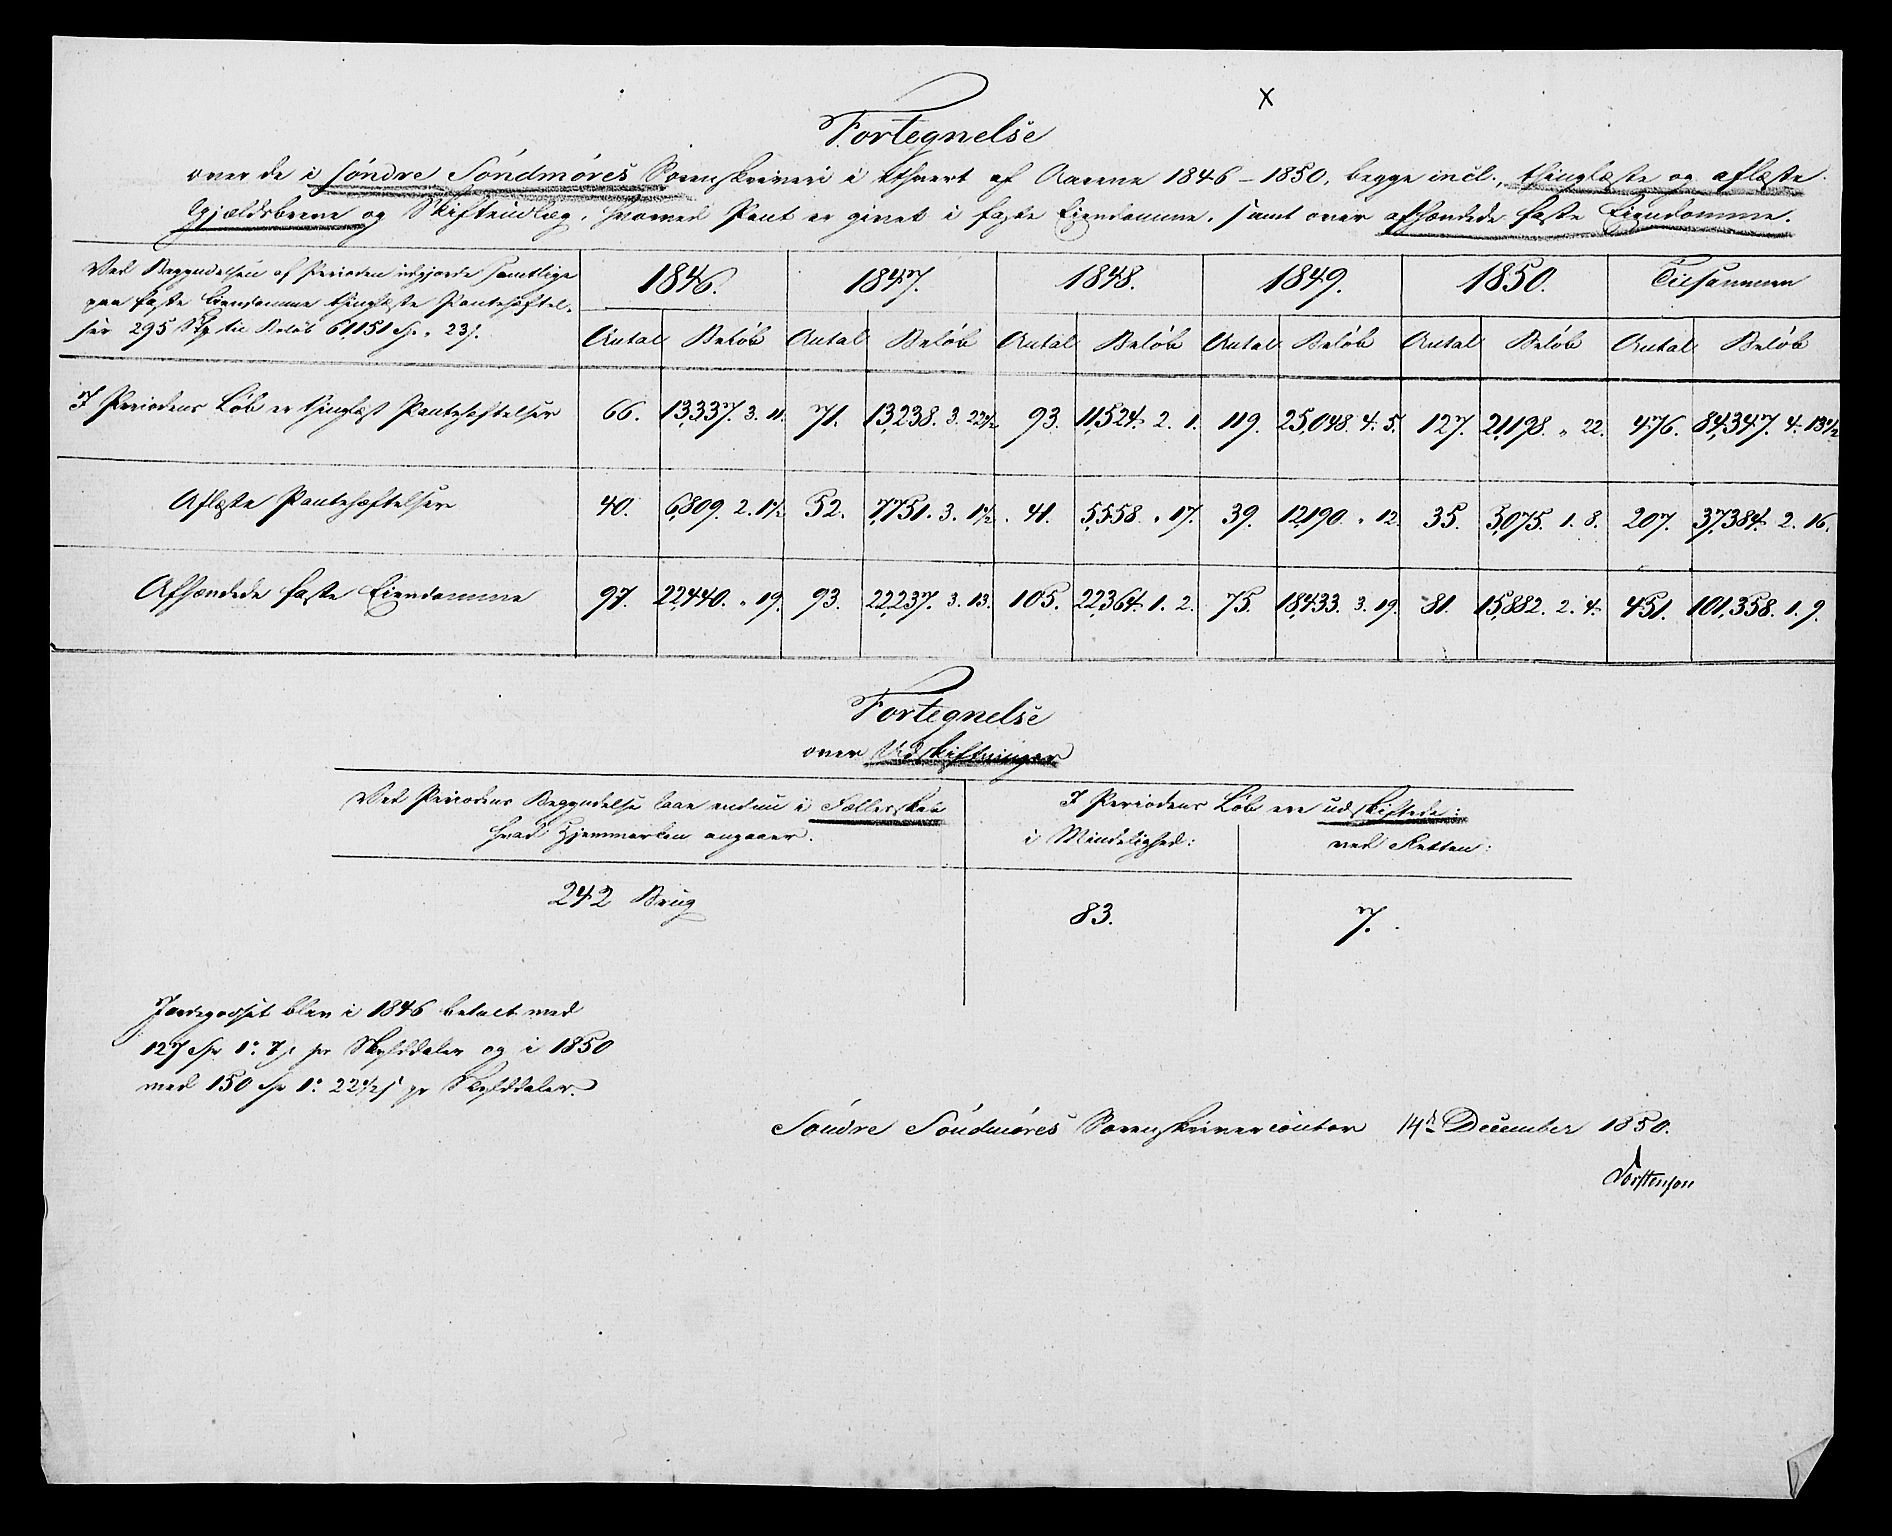 X
Fortegnelse
over de i søndre Søndmøres Sorenskriveri i ethvert af Aarene 1846 – 1850, begge incl., thinglæste og aflæste
Gjældsbreve og Skifteudlæg, hvorved Pant er givet i faste Eiendomme, samt over afhændede faste Eiendomme.
Ved Begyndelsen af Perioden udgjorde samtlige
paa faste Eiendomme thinglæste Pantehæftel-
ser 295 Stk til Beløb 61,151 Sp. " 23 s.
1846. 1847. 1848. 1849. 1850. Tilsammen
Antal Beløb Antal Beløb Antal Beløb Antal Beløb Antal Beløb Antal Beløb
I Periodens Løb er thinglæst Pantehæftelser 66. 13,337. 3. 11. 71. 13,238. 3. 22 1/2 93. 11,524. 2. 1. 119. 25,048. 4. 5. 127. 21,198. " 22. 476. 84,347. 4. 13 1/2
Aflæste Pantehæftelser 40. 6,809. 2. 1 1/2 52. 7,751. 3. 1 1/2 41. 5,558. " 17. 39. 12,190. " 12. 35. 5,075. 1. 8. 207. 37,384. 2. 16.
Afhændede faste Eiendomme 97. 22,440. " 19. 93. 22,237. 3. 13. 105. 22,364. 1. 2. 75. 18,433. 3. 19. 81. 15,882. 2. 4. 451. 101,358. 1. 9.
Fortegnelse
over Udskiftninger
Ved Periodens Begyndelse laae endnu i Fællesskab
hvad Hjemmarken angaaer.
I Periodens Løb ere udskiftede:
i Mindelighed: ved Retten:
242 Brug 83. 7.
Jordegodset blev i 1846 betalt med
127 Sp 1: 7 s pr Skylddaler og i 1850
med 150 Sp 1: 22 1/2 s pr Skylddaler.
Søndre Søndmøres Sorenskrivercontor 14d December 1850.
Torstenson